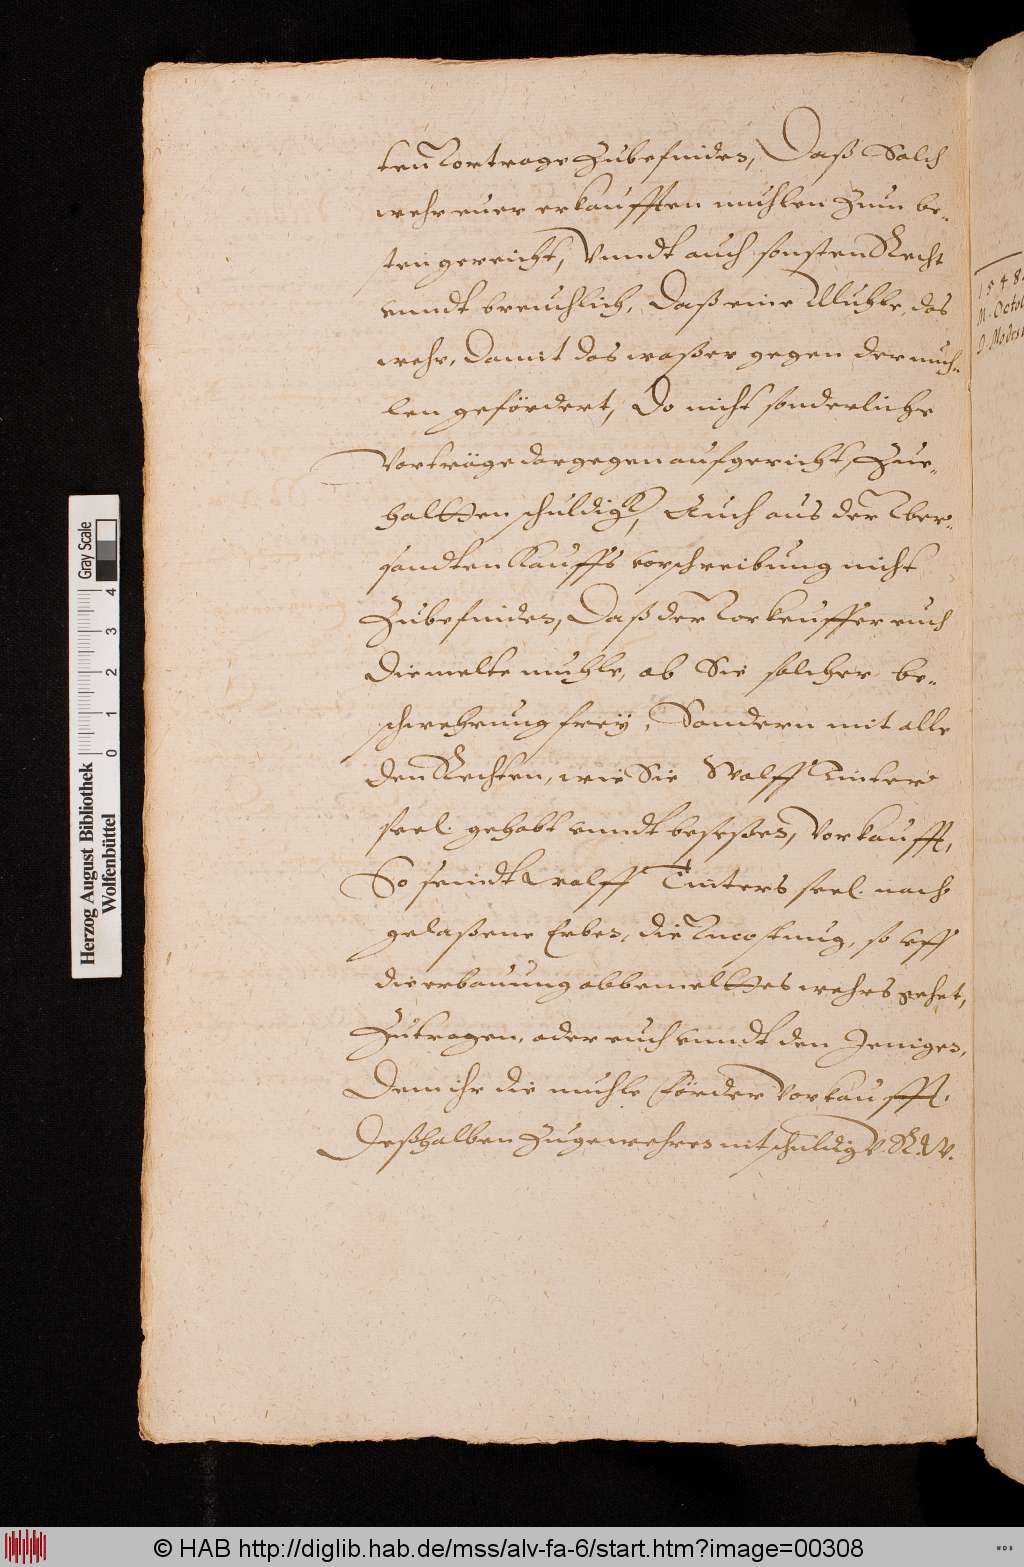 ten Vortrage Zubefinden, Daß Solch
wehr euer erkaufften muhlen Zum be-
sten gereicht, Vnndt auch sonsten Recht
vnndt breuchlich, Daß eine Muhle, das
wehr, Damit das waßer gegen der muh-
len gefördert, Do nicht sonderliche
Vorträge dargegen aufgericht, Zue-
haltten schuldigk, Auch aus der Vber-
sandten Kauffs vorschreibung nicht
Zubefinden, Daß der Vorkeuffer euch
die melte muhle, ob Sie solcher be-
schwehrung freÿ, Sondern mit alle
den Rechten, wie Sie Wolff
seel. gehabt vnndt beseßen, Vorkaufft,
So seindt Wolff seel. nach
gelaßene Erben, die Vncostung, so vff
die erbauung obbemelttes wehrs gehet,
Zutragen, oder euch vnndt den Jenigen,
Dem ihr die muhle förder Vorkaufft.
Deßhalben Zugewehren nit schuldig V. R. W.
1548
M. Octob
D. Modest
Herzog August Bibliothek
Wolfenbüttel
0 1 2 3 4
Gray Scale
© HAB http://diglib.hab.de/mss/alv-fa-6/start.htm?image=00308
WDB